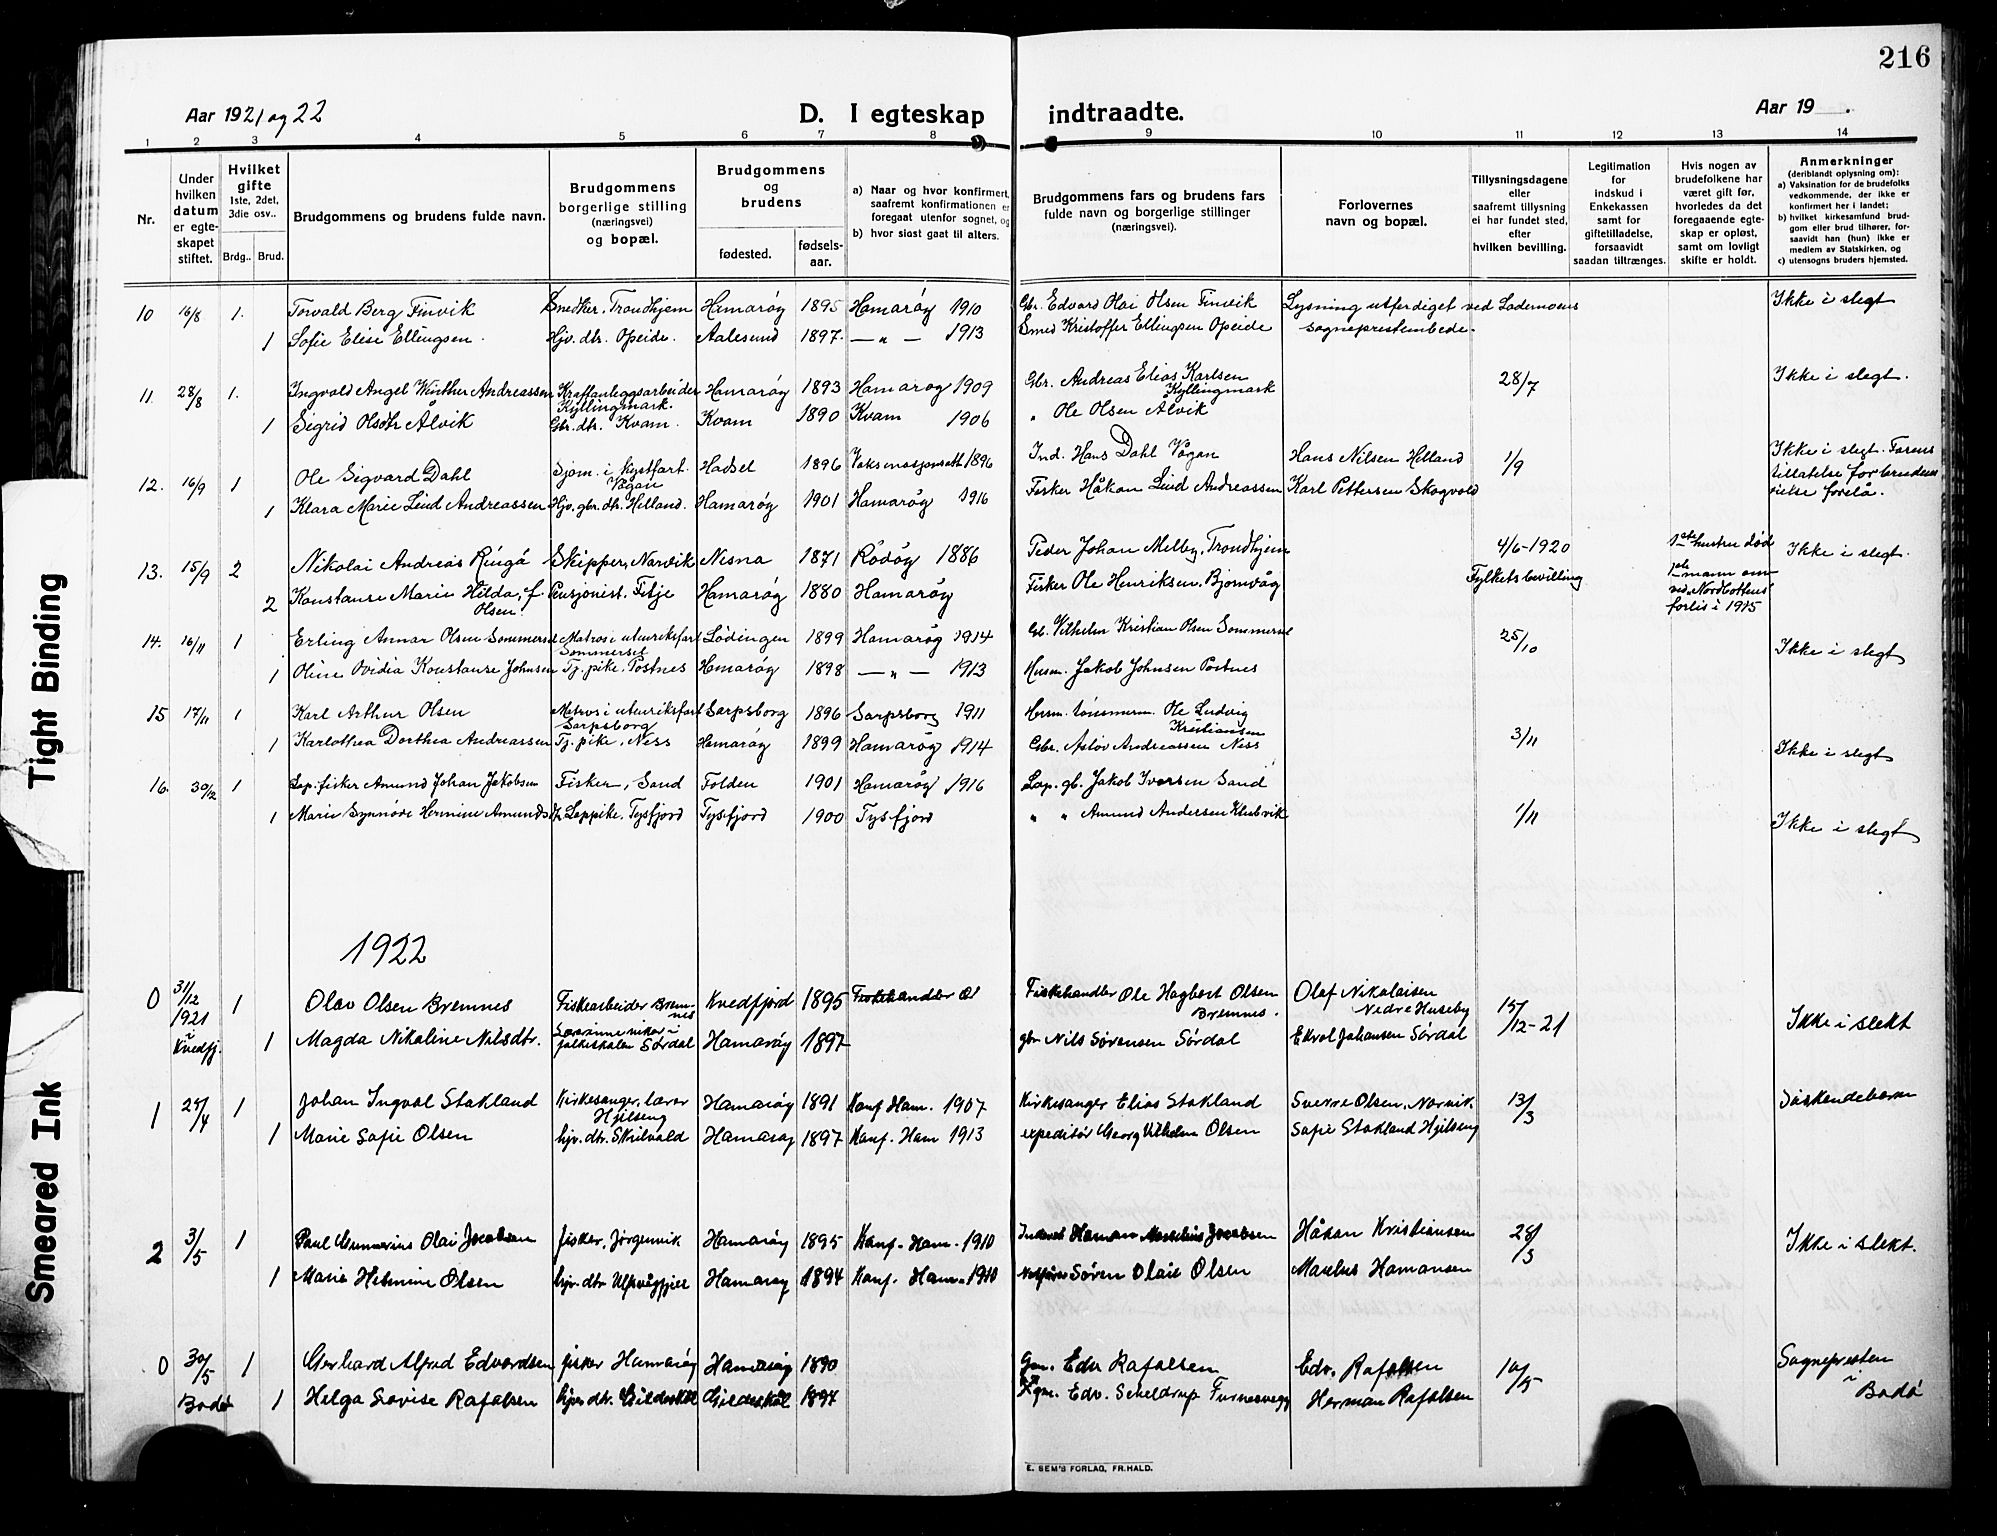 216
Aar 1921 og 22
D. I egteskap indtraadte.
Aar 19 .
1 2 3 4 5 6 7 8 9 10 11 12 13 14
Nr.
Under hvilken datum er egteskapet stiftet.
Hvilket gifte 1ste, 2det, 3die osv..
Brdg.. Brud.
Brudgommens og brudens fulde navn.
Brudgommens borgerlige stilling (næringsvei) og bopæl.
Brudgommens og brudens
fødested. fødselsaar.
a) Naar og hvor konfirmert, saafremt konfirmationen er foregaat utenfor sognet, og
b) hvor sidst gaat til alters.
Brudgommens fars og brudens fars fulde navn og borgerlige stillinger (næringsvei).
Forlovernes navn og bopæl.
Tillysningsdagene eller saafremt tillysning ei har fundet sted, efter hvilken bevilling.
Legitimation for indskud i Enkekassen samt for giftetilladelse, forsaavidt saadan tiltrænges.
Hvis nogen av brudefolkene har været gift før, hvorledes da det foregaaende egteskap er opløst, samt om lovligt skifte er holdt.
Anmerkninger (deriblandt oplysning om):
a) Vaksination for de brudefolks vedkommende, der ikke er konfirmert her i landet;
b) hvilket kirkesamfund brudgom eller brud tilhører, forsaavidt han (hun) ikke er medlem av Statskirken, og
c) utensogns bruders hjemsted.
10 16/8 1. Torvald Berg Finvik Snedker, Trondhjem Hamarøy 1895 Hamarøy 1910 Gbr. Edvard Olai Olsen Finvik Lysning utferdiget ved Lademoens Ikke i slegt
1 Sofie Elise Ellingsen. Hjv. dtr. Opeide. Aalesund 1897. — " — 1913 Smed Kristoffer Ellingsen Opeide sogneprestembede.
11. 28/8 1. Ingvald Angel Winther Andreassen Kraftanleggsarbeider Kyllingmark. Hamarøy 1893 Hamarøy 1909 Gbr. Andreas Elias Karlsen Kyllingmark 28/7 Ikke i slegt.
1 Sigrid Olsdtr Ålvik Gbr. dtr. Kvam. Kvam 1890 Kvam 1906 " Ole Olsen Ålvik
12. 16/9 1 Ole Sigvard Dahl Sjøm. i kystfart. Vågan Hadsel 1896 1896 Ind. Hans Dahl Vågan Hans Nilsen Helland 1/9 Ikke i slegt. Farens tillatelse for brudens vielse forelå.
1 Klara Marie Lind Andreassen Hjv. gbr. dtr. Helland. Hamarøy 1901 Hamarøy 1916 Fisker Håkon Lind Andreassen Karl Pettersen Skogvold
13. 15/9 2 Nikolai Andreas Ringå Skipper, Narvik Nesna 1871 Rødøy 1886 Peder Johan Melby, Trondhjem 4/6-1920 1ste hustru død Ikke i slegt.
2 Konstanse Marie Hilda, f. Olsen. Pensjonist. Fitje Hamarøy 1880 Hamarøy Fisker Ole Henriksen, Bjørnvåg Fylkets bevilling 1ste mann om ved "Nordbottens" forlis i 1915
14. 16/11 1 Erling Annar Olsen Sommerset Matros i utenriksfart Sommerset Lødingen 1899 Hamarøy 1914 Gb. Vilhelm Kristian Olsen Sommerset 25/10 Ikke i slegt
1 Oline Ovidia Konstanse Johnsen Tj. pike. Postnes Hamarøy 1898 — " — 1913 Husm. Jakob Johnsen Postnes
15 17/11 1 Karl Arthur Olsen Matros i utenriksfart Sarpsborg Sarpsborg 1896 Sarpsborg 1911 Husm. tømmerm. Ole Ludvig Kristiansen
1 Karlothea Dorthea Andreassen Tj. pike, Ness Hamarøy 1899 Hamarøy 1914 Gbr. Asløv Andreassen Ness 3/11 Ikke i slegt
16. 30/12 1 Lap. fisker Amund Johan Jakobsen Fisker, Sand Folden 1901 Hamarøy 1916 Lap. gb. Jakob Iversen Sand
1 Marie Synnøve Hermine Amundsd. Lappike. Tysfjord Tysfjord 1900 Tysfjord " " Amund Andersen Klubvik 1/11 Ikke i slegt
1922
0 31/12 1921 i Kvedfj. 1 Olav Olsen Bremnes Fiskearbeider Bremnes Kvedfjord 1895 Fiskehandler Ol Fiskehandler Ole Hagbert Olsen Bremnes. Olaf Nikolaisen Nedre Huseby 15/12-21 Ikke i slekt
1 Magda Nikoline Nilsdtr. Lærerinne vikar i folkeskolen Sørdal Hamarøy 1897 gbr Nils Sørensen Sørdal Johansen Sørdal
1 25/4 1 Johan Ingval Stokland Kirkesanger, lærer Hjelseng Hamarøy 1891 Konf. Ham. 1907 Kirkesanger Elias Stokland Sverre Olsen, Narvik 13/3 Søskendebarn
1 Marie Sofie Olsen hjv. dtr. Skilvald Hamarøy 1897 Konf. Ham 1913 expeditør Georg Vilhelm Olsen Sofie Stokland Hjelseng
2 3/5 1 Paul Gunnerius Olai Jacobsen fisker, Jørgenvik Hamarøy 1895 Konf. Ham. 1910 Haman Jacobsen Håkon Kristiansen 28/3 Ikke i slekt.
1 Marie Helmine Olsen hjv. dtr. Hamarøy 1894 Konf. Ham. 1910 Søren Olaie Olsen Marelius Hamansen
0 30/5 Bodø 1 Gerhard Alfred Edvardsen fisker Hamarøy Hamarøy 1890 Gm. Edv. Rafalsen Edv. Rafalsen 10/5 Sognepresten i Bodø
1 Helga Lovise Rafalsen hjv. dtr. Gildeskål Gildeskål 1897 Edv. Scheldrup Furnesvegg Herman Rafalsen
E. SEM'S FORLAG, FR.HALD.
Tight Binding
Smeared Ink